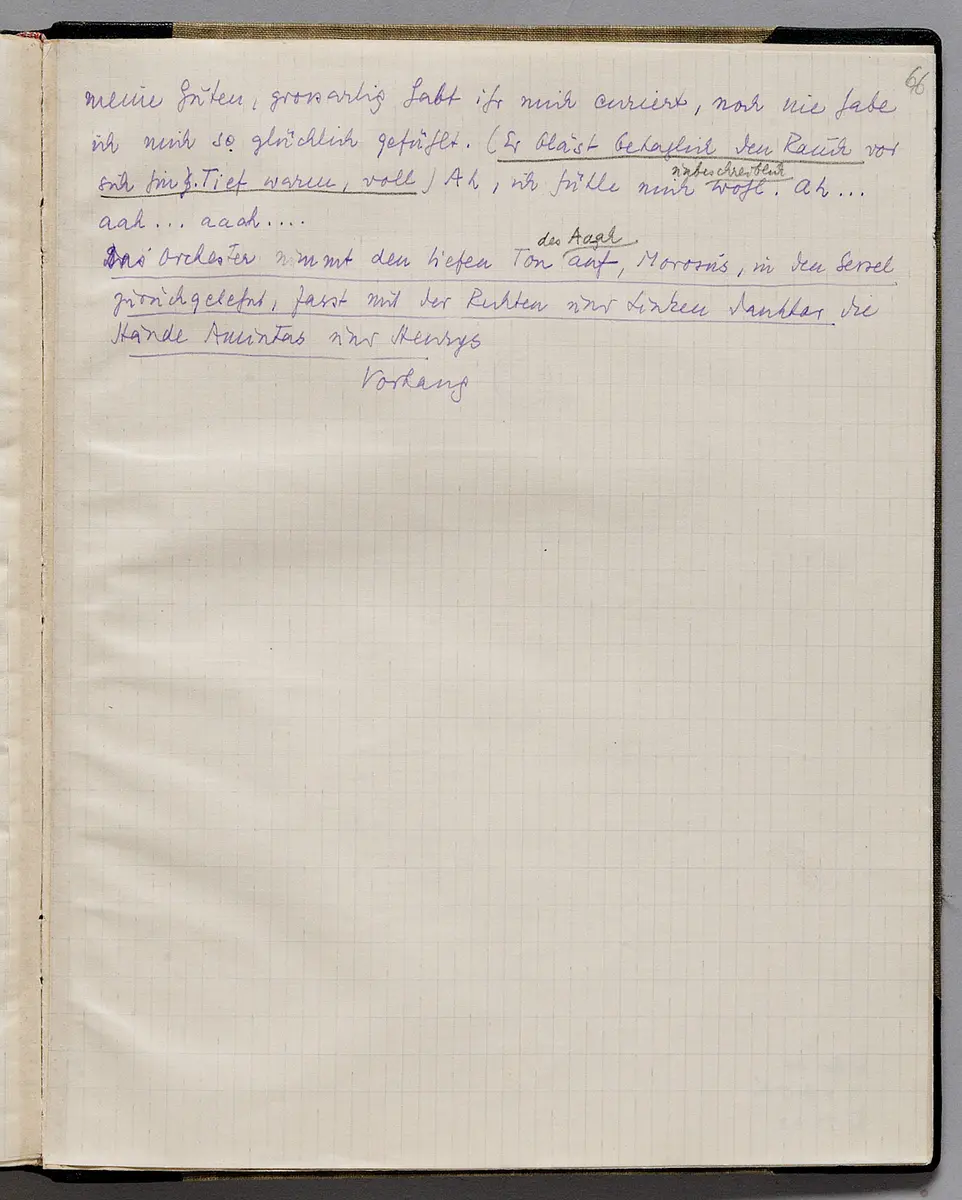 66
meine Guten, grossartig habt ihr mich curiert, noch nie habe
ich mich so glücklich gefühlt. (Er bläst behaglich den Rauch vor
sich hin. Tief warm, voll) Ah, ich fühle mich unbeschreiblich wohl. Ah...
aah... aaah....
Das Orchester nimmt den tiefen Ton des Aaah auf, Morosus, in den Sessel
zurückgelehnt, fasst mit der Rechten und Linken dankbar die
Hände Amintas und Henrys
Vorhang